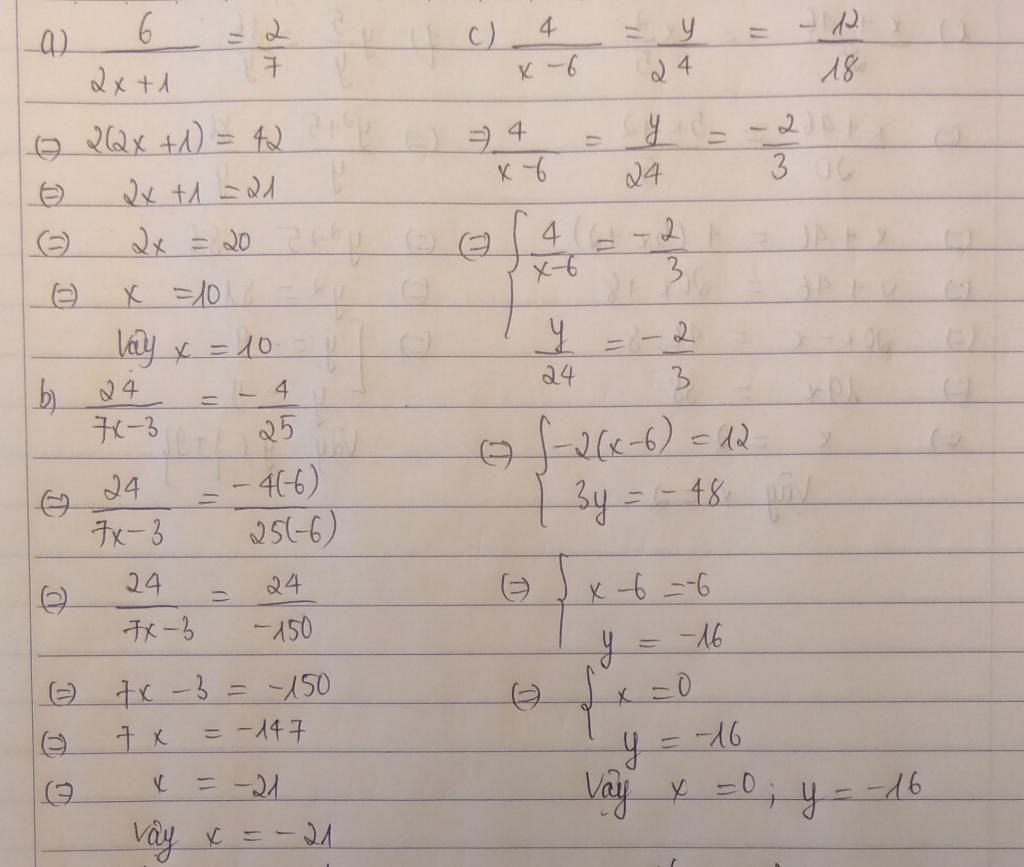 a) 6/(2x+1) = 2/7
(=) 2(2x+1) = 42
(=) 2x+1 = 21
(=) 2x = 20
(=) x = 10
Vậy x = 10
b) 24/(7x-3) = -4/25
(=) 24/(7x-3) = -4(-6)/25(-6)
(=) 24/(7x-3) = 24/-150
(=) 7x-3 = -150
(=) 7x = -147
(=) x = -21
Vậy x = -21
c) 4/(x-6) = y/24 = -12/18
=) 4/(x-6) = y/24 = -2/3
(=) { 4/(x-6) = -2/3
y/24 = -2/3
(=) { -2(x-6) = 12
3y = -48
(=) { x-6 = -6
y = -16
(=) { x = 0
y = -16
Vậy x = 0; y = -16